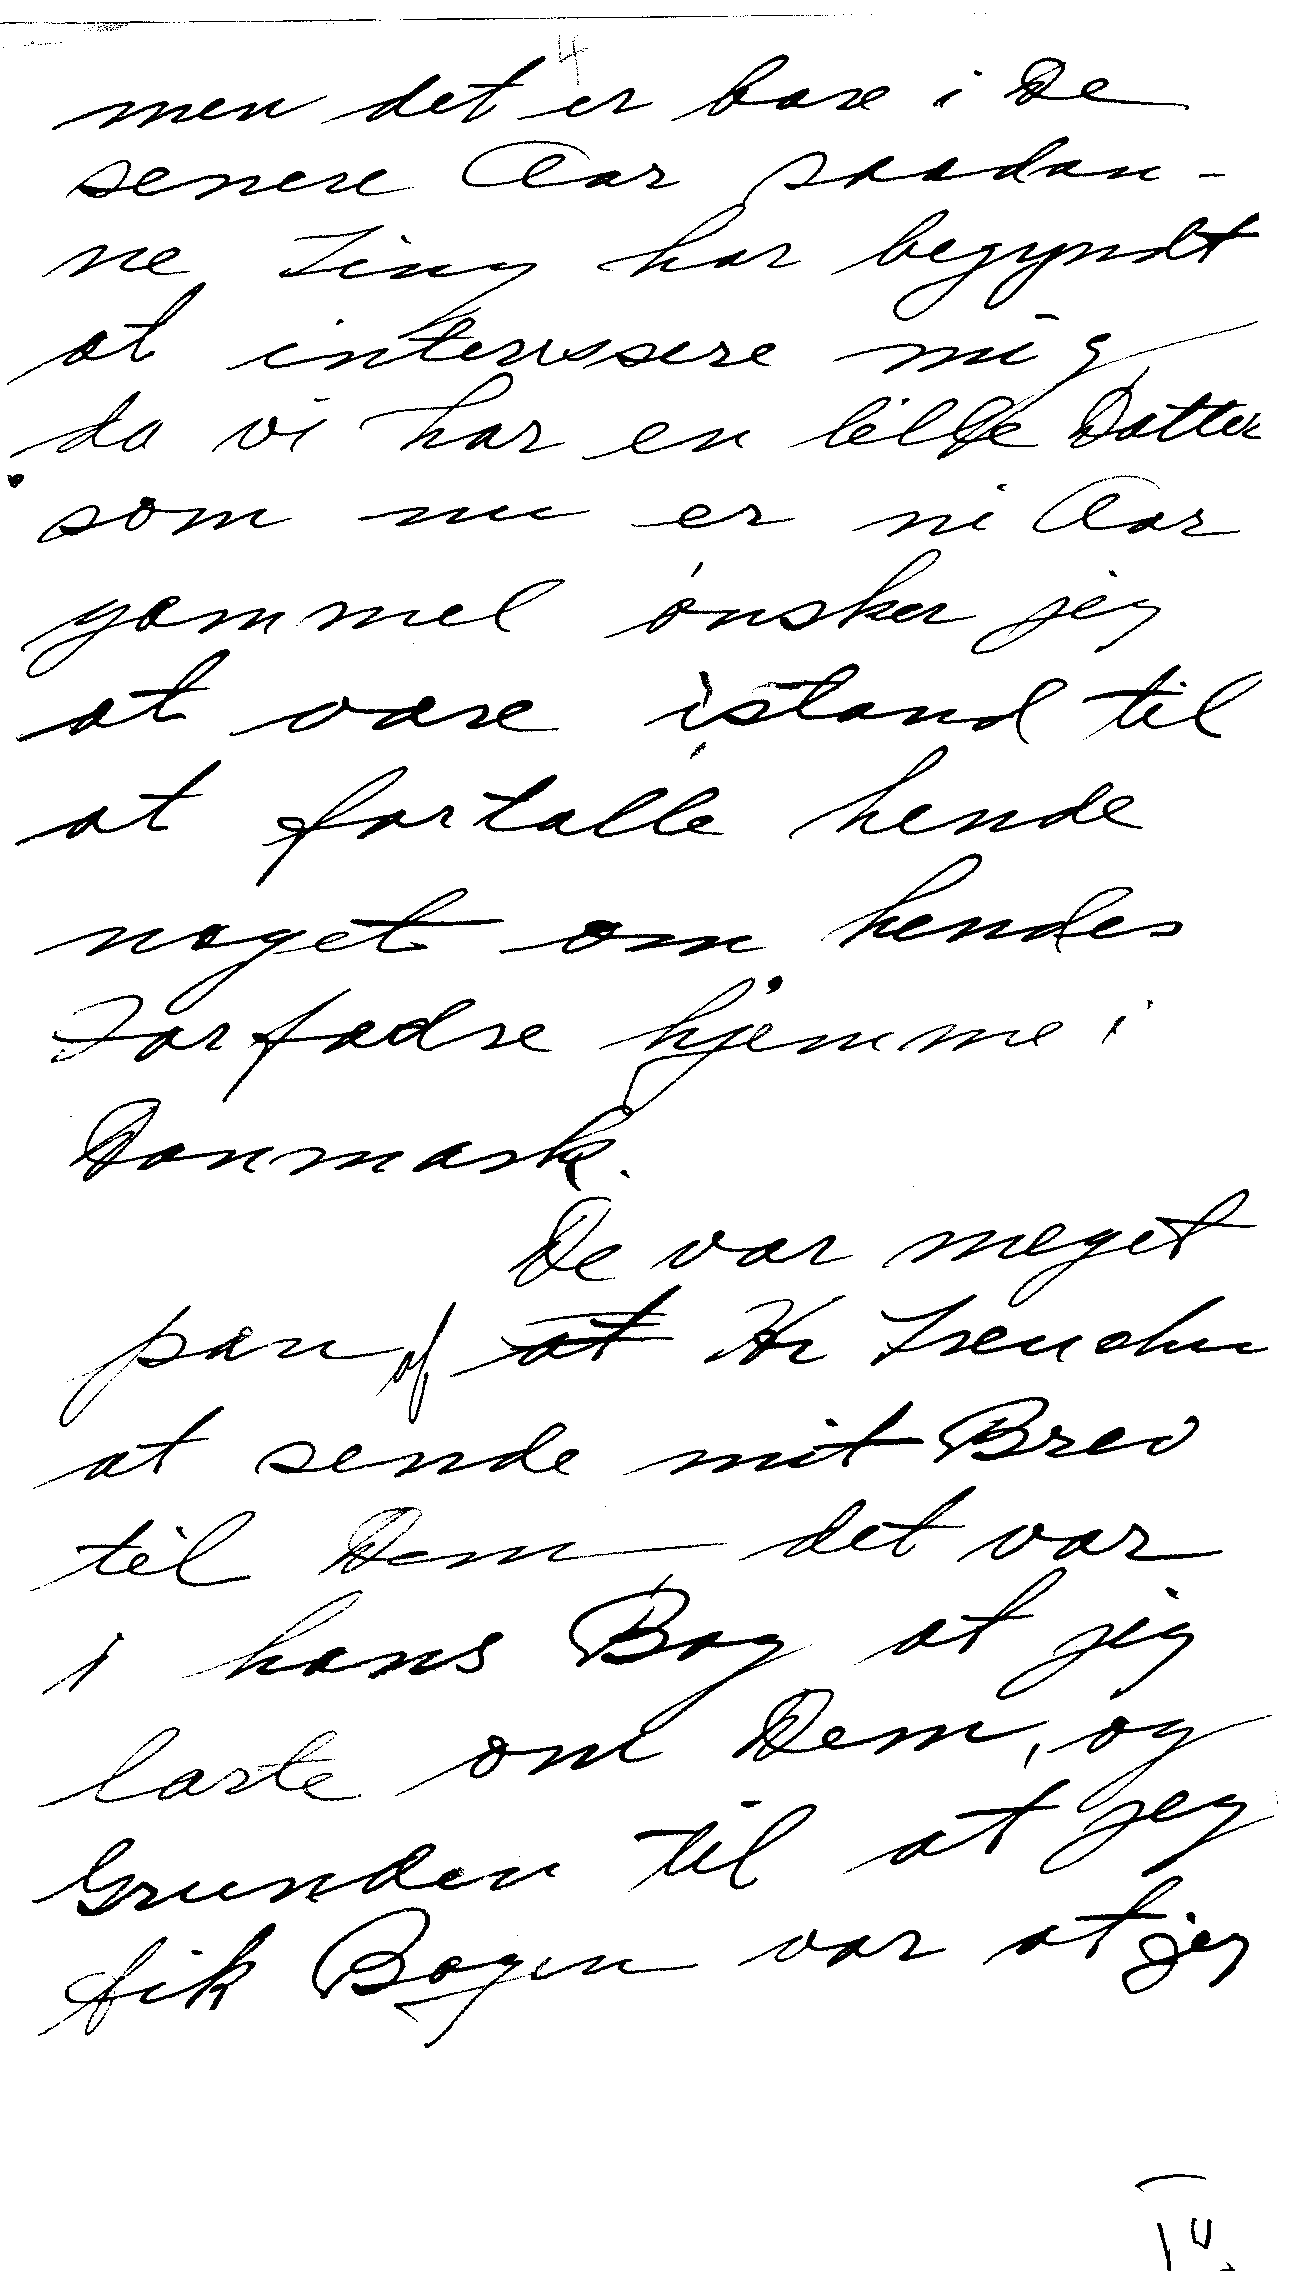 4
men det er bare i De
senere Aar saadan-
ne Ting har begyndt
at interrssere mig,
da vi har en lille Datter
som nu er ni Aar
gammel ønsker jeg
at være istand til
at fortalle hende
noget om hendes
Forfædre hjemme i
Danmark.
De var meget
pæn af at Hr
at sende mit Brev
til Dem, det var
i hans Bog at jeg
læste om Dem, og
Grunden til at jeg
fik Bogen var at jeg